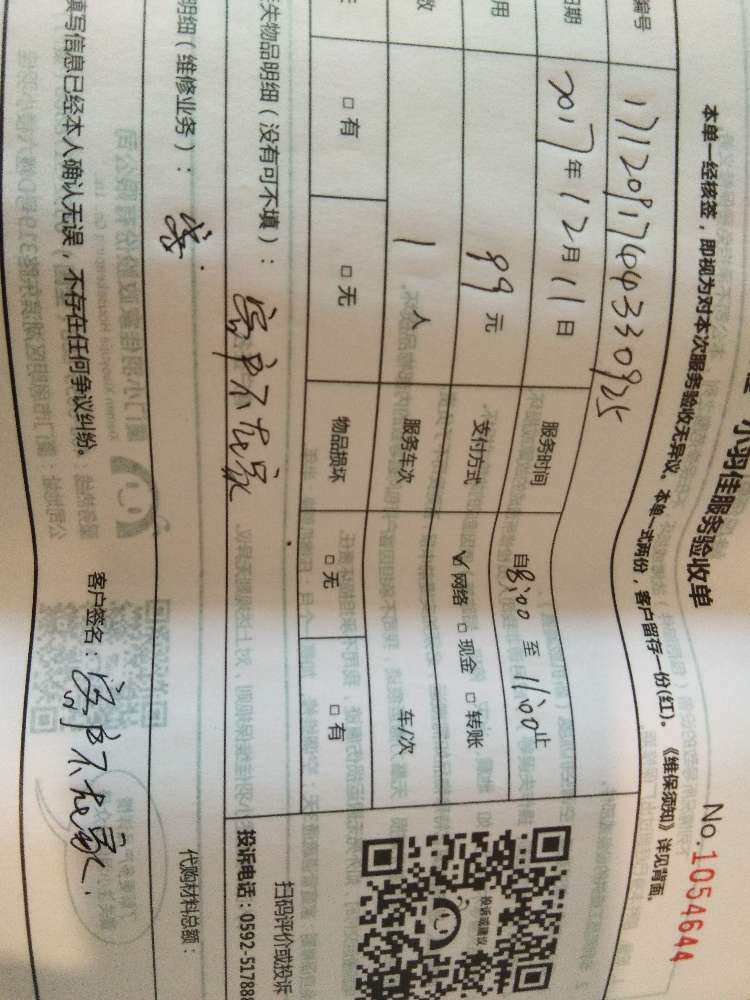 小羽佳服务验收单
No.1054644
本单一经核签，即视为对本次服务验收无异议。本单一式两份，客户留存一份(红)。《维保须知》详见背面。
编号 1712091744330925
日期 2017年12月11日 服务时间 自8:00至11:00止
用 99元 支付方式 ☑网络 □现金 □转账
数 1人 服务车次 车/次
□有 □无 物品损坏 □无 □有
失物品明细（没有可不填）： 客户不在家
扫码评价或投诉
投诉电话：0592-51788
投诉或建议
明细（维修业务）：
代购材料总额：
填写信息已经本人确认无误，不存在任何争议纠纷。
客户签名：客户不在家.